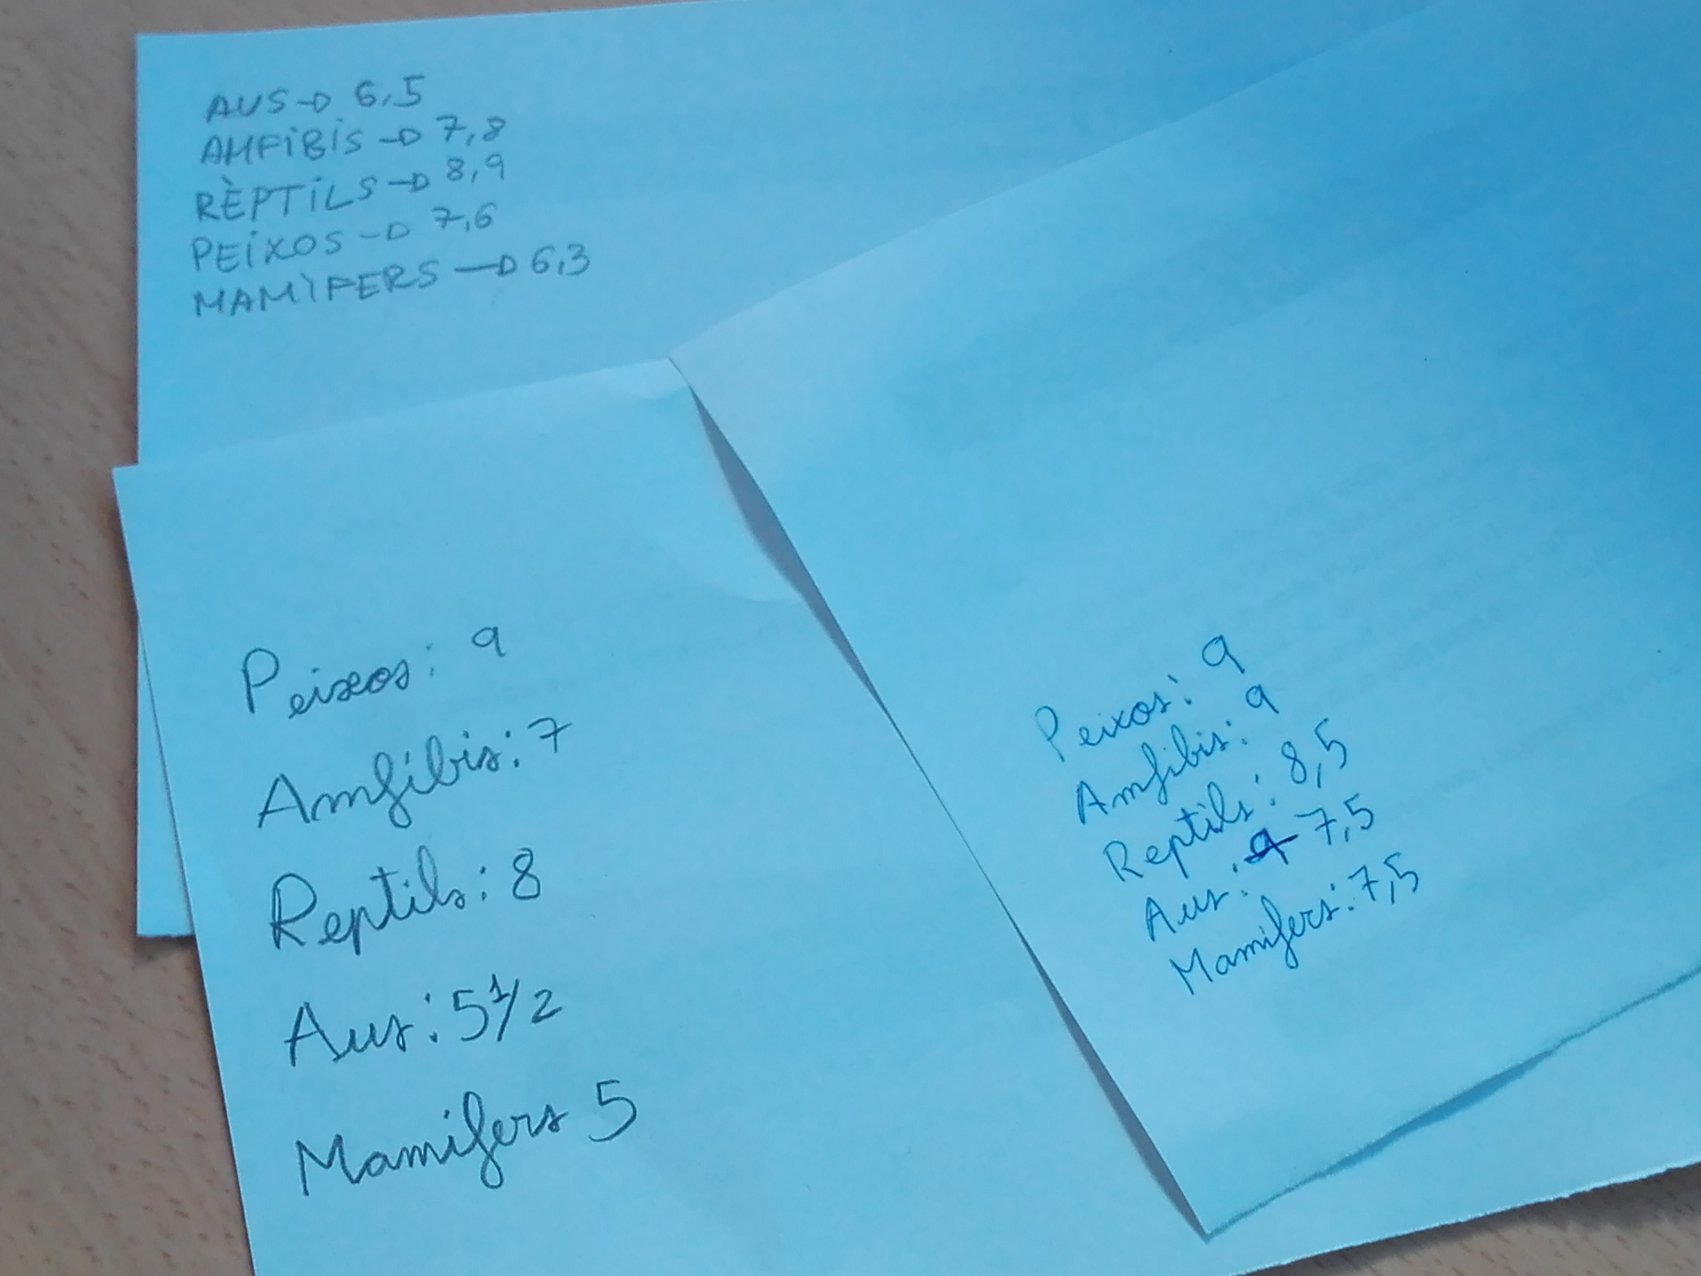 AUS → 6,5
AMFIBIS → 7,8
RÈPTILS → 8,9
PEIXOS → 7,6
MAMÍFERS → 6,3
Peixos: 9
Amfíbis: 7
Reptils: 8
Aus: 5 1/2
Mamifers 5
Peixos: 9
Amfibis: 9
Reptils: 8,5
Aus: 9 7,5
Mamifers: 7,5